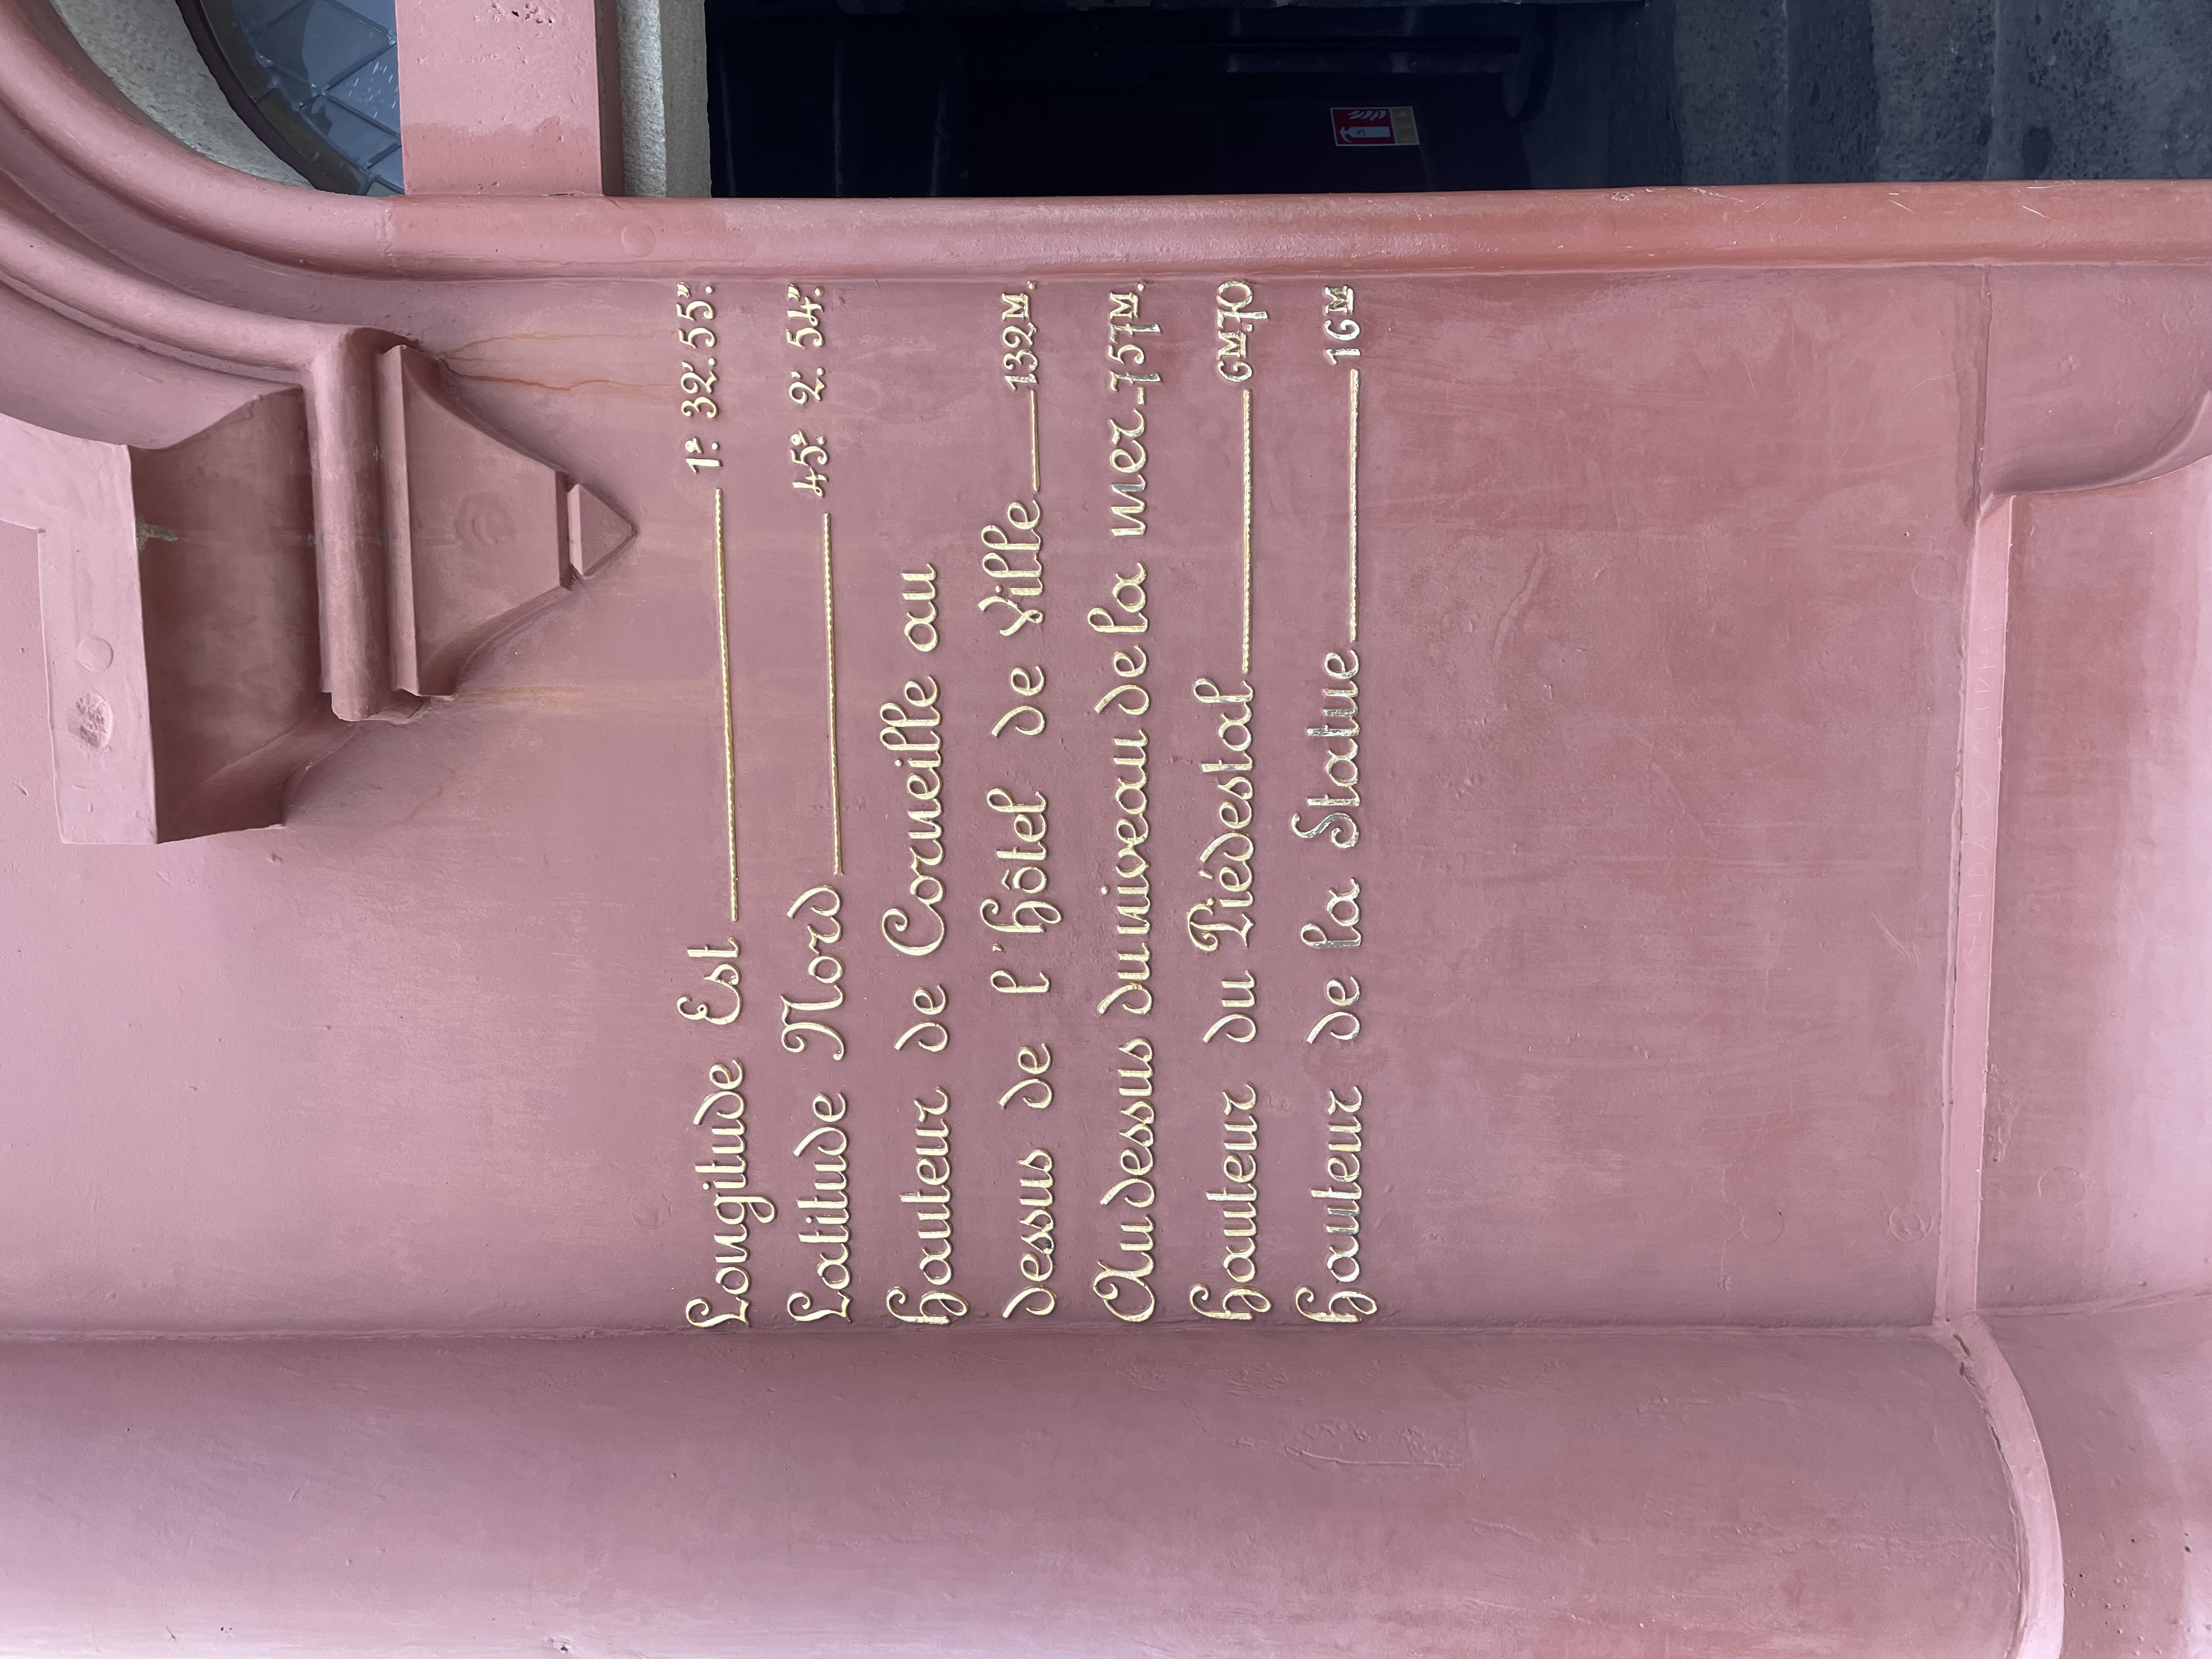 Longitude Est 1º. 32'. 55".
Latitude Nord 45º. 2'. 54".
Hauteur de Corneille au
dessus de l'hôtel de Ville 132M.
Au dessus du niveau de la mer 757M.
Hauteur du Piédestal 6M,70
Hauteur de la Statue 16M